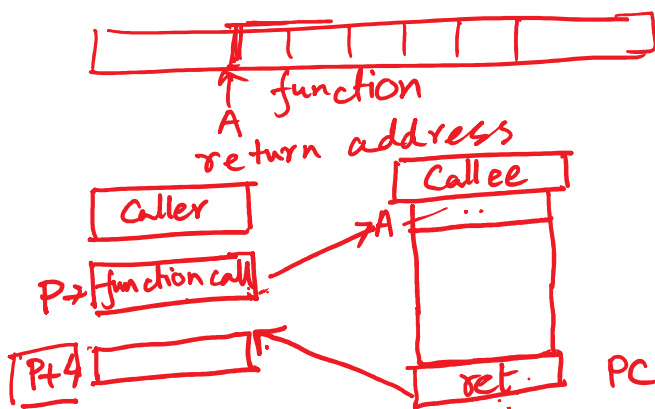 function
A
return address
Callee
Caller
A ..
P→ function call
P+4
ret
PC